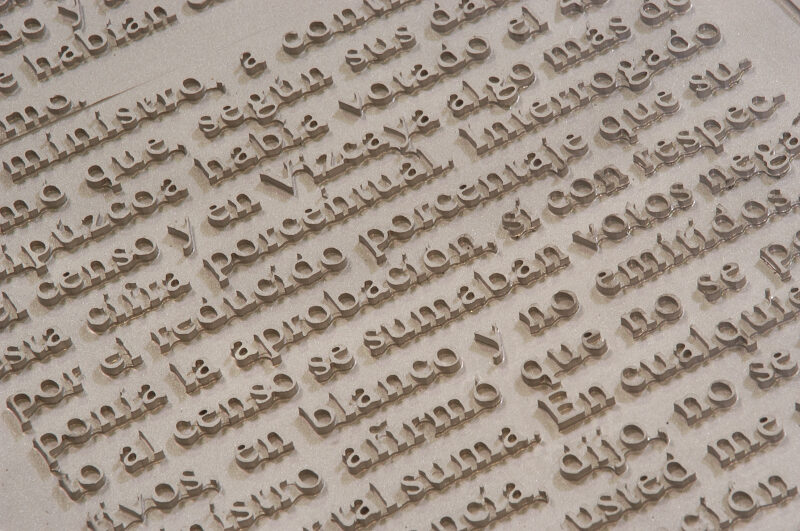 o y
e habían
mo.
ministro, a conti
mo que, según sus da
ipúzcoa había votado el
el censo y en Vizcaya algo más de
esta cifra porcentual. Interrogado
por el reducido porcentaje que su-
ponía la aprobación, si con respec-
to al censo se sumaban votos nega
tivos, en blanco y no emitidos
nistro afirmó que no se po
tal suma. En cualquie
ncia, dijo, no se
usted me
ción